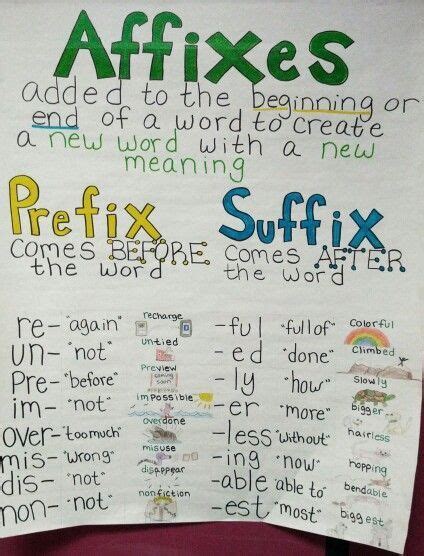 Affixes
added to the beginning or
end of a word to create
a new word with a new
meaning
Prefix
comes BEFORE
the word
re- "again" recharge
un- "not" untied
Pre- "before" Preview
coming soon
im- "not" impossible
over- "too much" overdone
mis- "wrong" misuse
dis- "not" disappear
non- "not" nonfiction
Suffix
comes AFTER
the word
-ful "full of" Colorful
-ed "done" Climbed
-ly "how" Slowly
-er "more" bigger
-less "without" hairless
-ing "now" hopping
-able "able to" bendable
-est "most" biggest